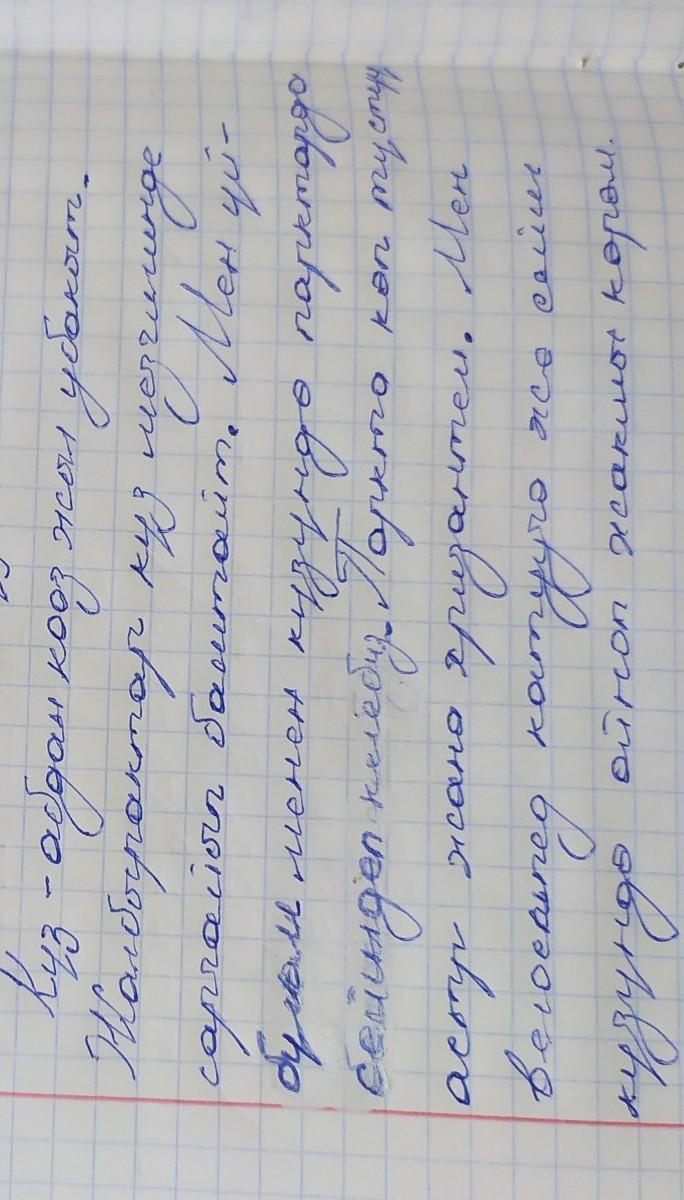 Куз - абдан кооз жыл убакыт.
Жалбырактар куз мезгилинде
саргайып баштайт. Мен үй-
бүлөм менен күзүндө парктордо
сейилдеп келебиз. Паркта көп түстүү
астр жана хризантем. Мен
велосипед катууга же сейил
күзүндө ойноп жакшы көрөм.